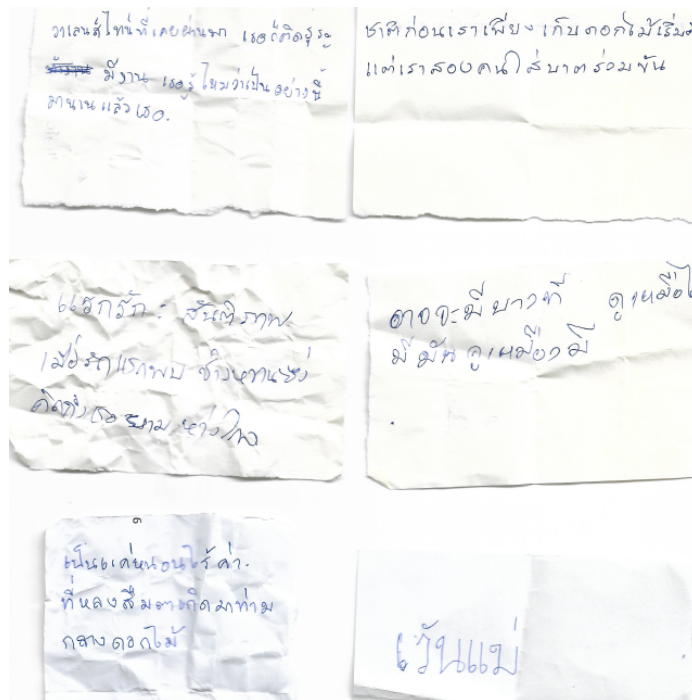 วาเลนส์ไทน์ที่เคยผ่านมา เธอก็ติดธุระ
มีงาน เธอรู้ไหมว่าเป็นอย่างนี้
มานานแล้วเธอ.
ชาติก่อนเราเพียงเก็บดอกไม้เริ่ม
แต่เราสองคนใส่บาตรร่วมขัน
แรกรัก : สันติภาพ
เมื่อรักแรกพบ ช่างหวานซึ้ง
คิดถึงเธอยามห่างไกล
อาจจะมีบางที ดูเหมือ
มีมัน ดูเหมือง มี
เป็นแค่หนอนไร้ค่า.
ที่หลงลืมตาเกิดมาท่าม
กลางดอกไม้
เว้นแม่